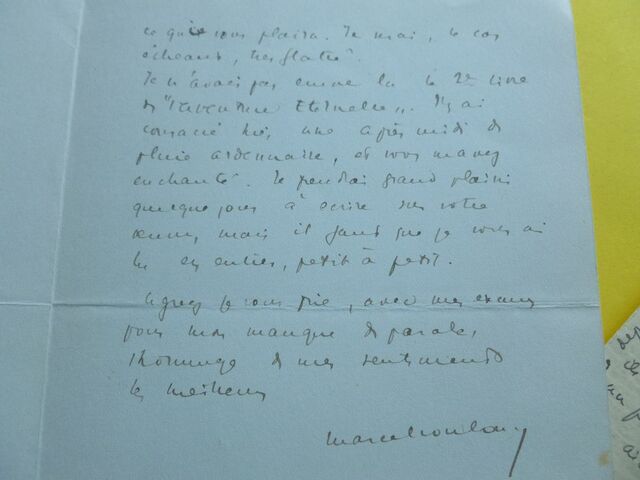 ce qu'il vous plaira. Je serai, le cas
échéant, très flatté.
Je n'avais pas encore lu le 2e livre
de "l'Aventure Eternelle". J'y ai
consacré hier une après midi de
pluie ardennaise, et vous m'avez
enchanté. Je prendrai grand plaisir
quelque jour à écrire sur votre
œuvre, mais il faut que je vous ai
lu en entier, petit à petit.
Agréez je vous prie, avec mes excuses
pour mon manque de parole,
l'hommage de mes sentiments
les meilleurs